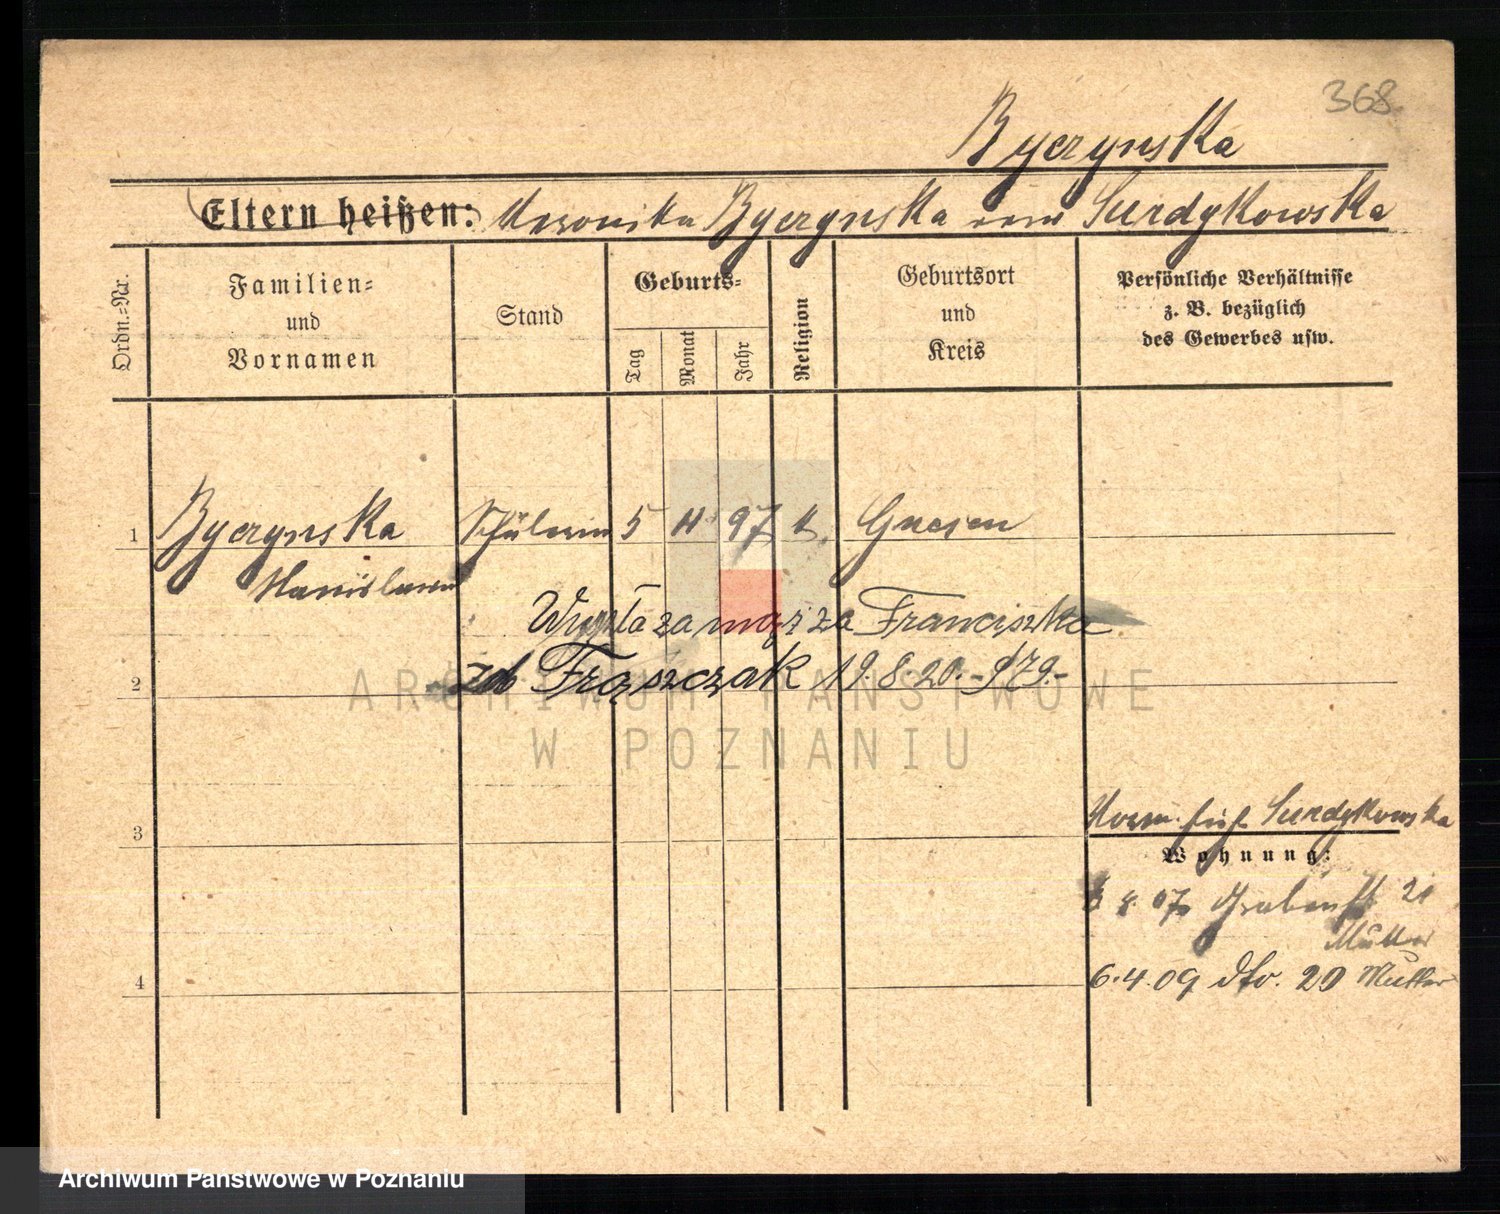 368.
Byczynska
Eltern heißen: Veronika Byczynska Surdykowska
Ordn.=Nr.
Familien=
und
Vornamen
Stand
Geburts=
Tag
Monat
Jahr
Religion
Geburtsort
und
Kreis
Persönliche Verhältnisse
z. B. bezüglich
des Gewerbes usw.
1 Byczynska Schülerin 5 97 k. Gnesen
Stanislawa
Wyszła za mąż za Franciszka
Frąszczak 19.8.20.-979.-
2
ARCHIWUM PAŃSTWOWE
W POZNANIU
3
Surdykowska
Wohnung:
8.07 Grabenstr 21
Mutter
4
6.4.09 dto. 20 Mutter
Archiwum Państwowe w Poznaniu